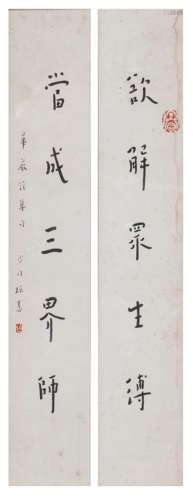 欲解眾生縛
當成三界師
華嚴經集句